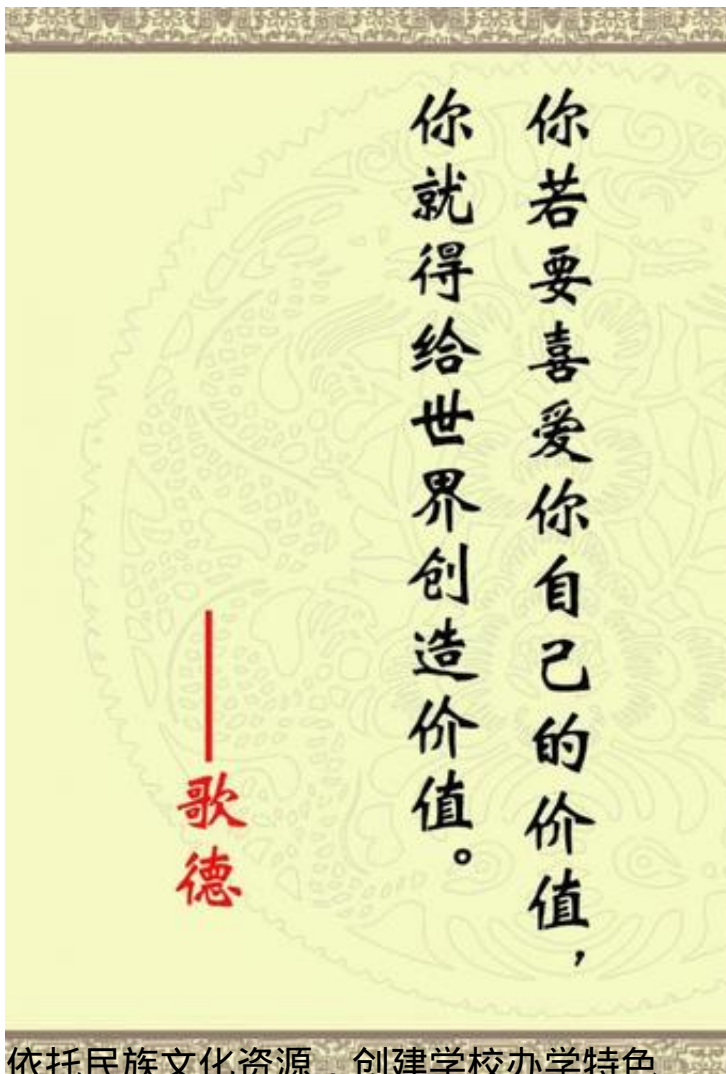 你若要喜爱你自己的价值，
你就得给世界创造价值。
——歌德
依托民族文化资源，创建学校办学特色